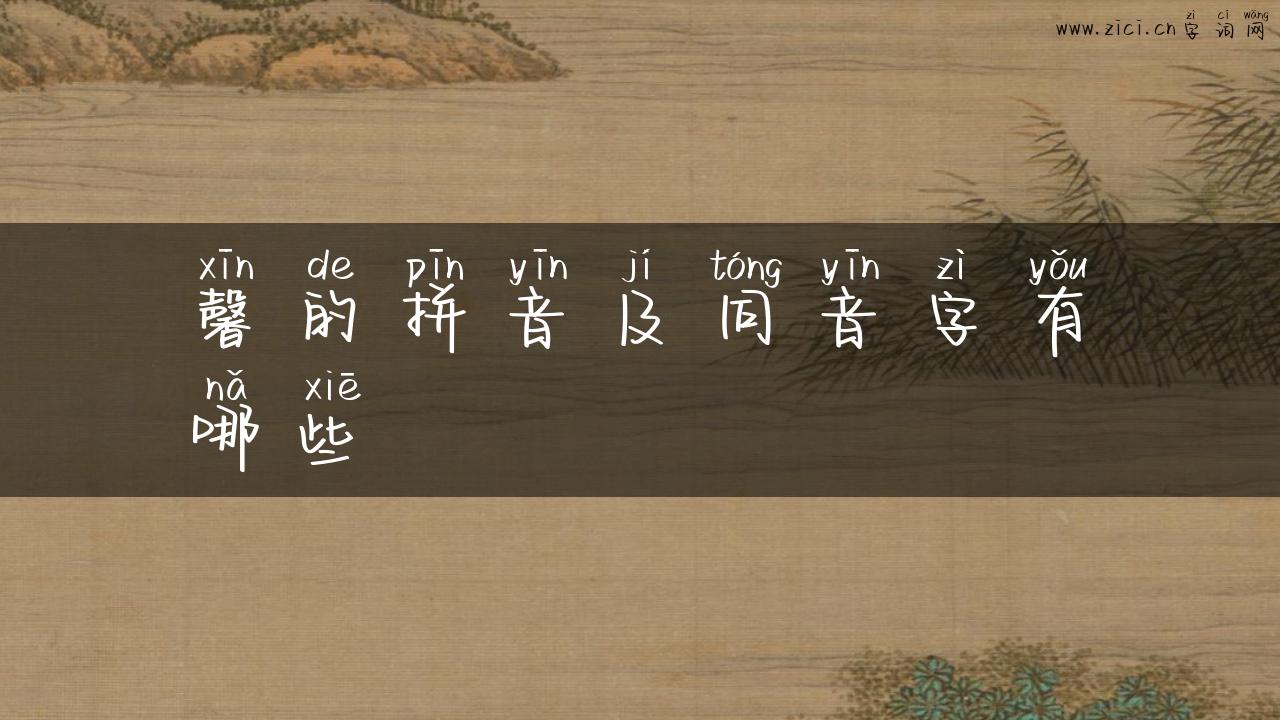 zì cí wǎng
www.zici.cn 字词网
xīn de pīn yīn jí tóng yīn zì yǒu
馨的拼音及同音字有
nǎ xiē
哪些